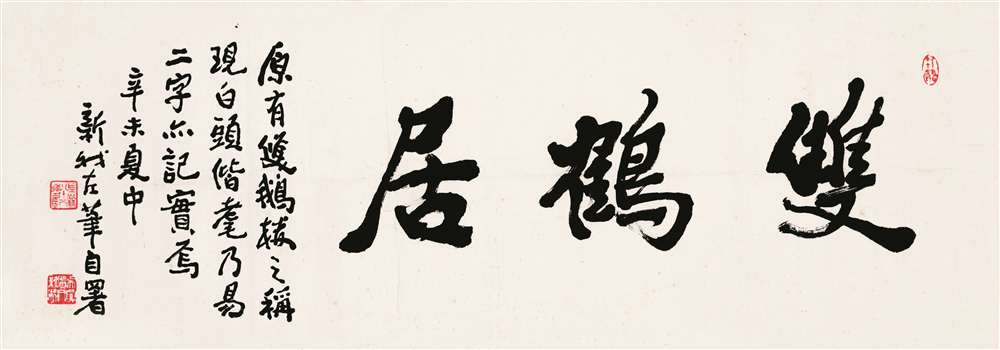 雙鶴居
原有雙鵝榜之稱
現白頭偕耄乃易
二字亦記實焉
辛未夏中
新我左筆自署